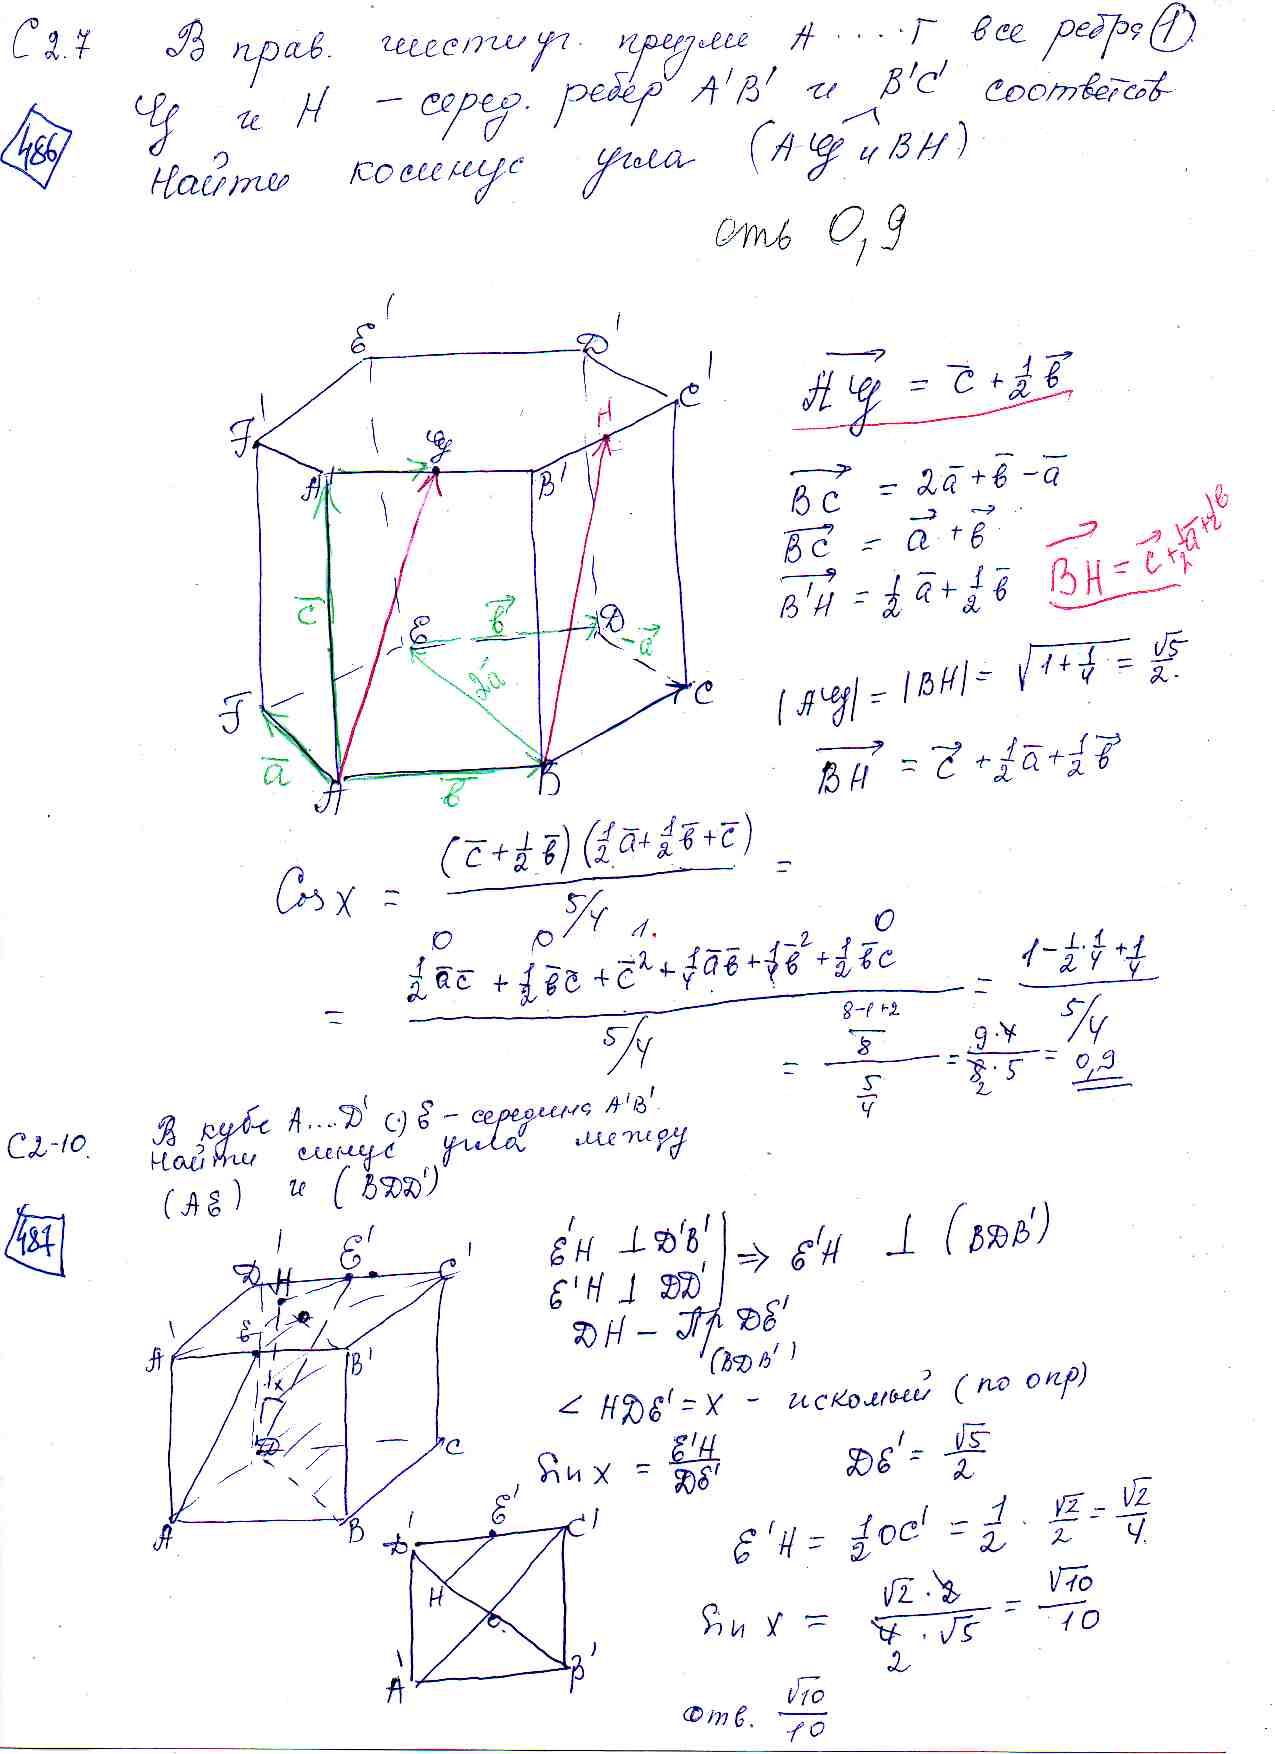 С2.7 В прав. шестиуг. призме A....F все ребра 1.
486
G и H – серед. ребер A'B' и B'C' соответств
Найти косинус угла (AG и BH)
отв 0,9
E' D' C' F' A' G B' H
F E D C A B
a̅ b̅ c̅ 2a̅ b⃗ -a⃗
AG = c̅ + 1/2 b̅
BC = 2a̅ + b̅ - a̅
BC = a⃗ + b⃗
B'H = 1/2 a̅ + 1/2 b̅
BH = c⃗ + 1/2 a̅ + 1/2 b̅
|AG| = |BH| = √(1+1/4) = √5/2.
BH = c⃗ + 1/2 a̅ + 1/2 b⃗
Cos x = (c̅ + 1/2 b̅)(1/2 a̅ + 1/2 b̅ + c̅) / 5/4 =
0 0 1. 0
= (1/2 a̅c̅ + 1/2 b̅c̅ + c̅² + 1/4 a̅b̅ + 1/4 b̅² + 1/2 b̅c) / 5/4 = (1 - 1/2·1/4 + 1/4) / 5/4
= (8-1+2)/8 / 5/4 = 9·4 / 8·5 = 0,9
2
С2-10. В кубе A...D' (·) E – середина A'B'.
Найти синус угла между
(AE) и (BDD')
487
D' H E' C' A' E B' x D C A B
E'H ⊥ D'B'
E'H ⊥ DD' ⇒ E'H ⊥ (BDB')
DH – Пр DE'
(BDB')
< HDE' = x – искомый (по опр)
Sin x = E'H / DE' DE' = √5/2
E'H = 1/2 OC' = 1/2 · √2/2 = √2/4.
D' E' C' H O A' B'
Sin x = √2·2 / 4·√5 = √10/10
2
Отв. √10/10